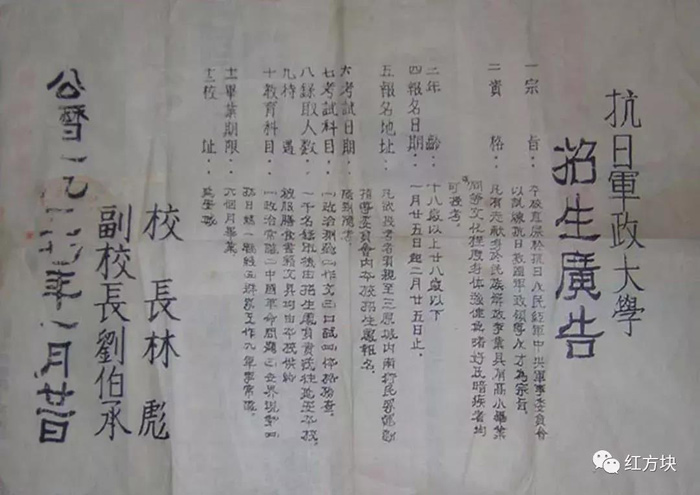 抗日軍政大學
招生廣告
一宗旨：本校直屬於抗日人民紅軍中央軍事委員會
以訓練抗日救國軍政領導人才為宗旨。
二資格：凡有志獻身於民族解放事業具有高小畢業
同等文化程度身体強健無嗜好及暗疾者均
可投考。
三年齡：十八歲以上廿八歲以下
四報名日期：一月廿五日起二月廿五日止。
五報名地址：凡欲投考者須親至三原城内南行民眾運動
指導委員會内本校招生處報名。
六考試日期：隨到隨考。
七考試科目：㈠政治測驗㈡作文㈢口試㈣体格檢查。
八錄取人數：一千名錄取後由招生處負責送往延安本校。
九待遇：被服膳食書籍文具均由本校供給
十教育科目：㈠政治常識㈡中國革命問題㈢世界現勢㈣
抗日統一戰線㈤群眾工作㈥軍事常識。
十一畢業期限：六個月畢業。
十二校址：延安城
校長林彪
副校長劉伯承
公曆一九三七年一月廿日
红方块